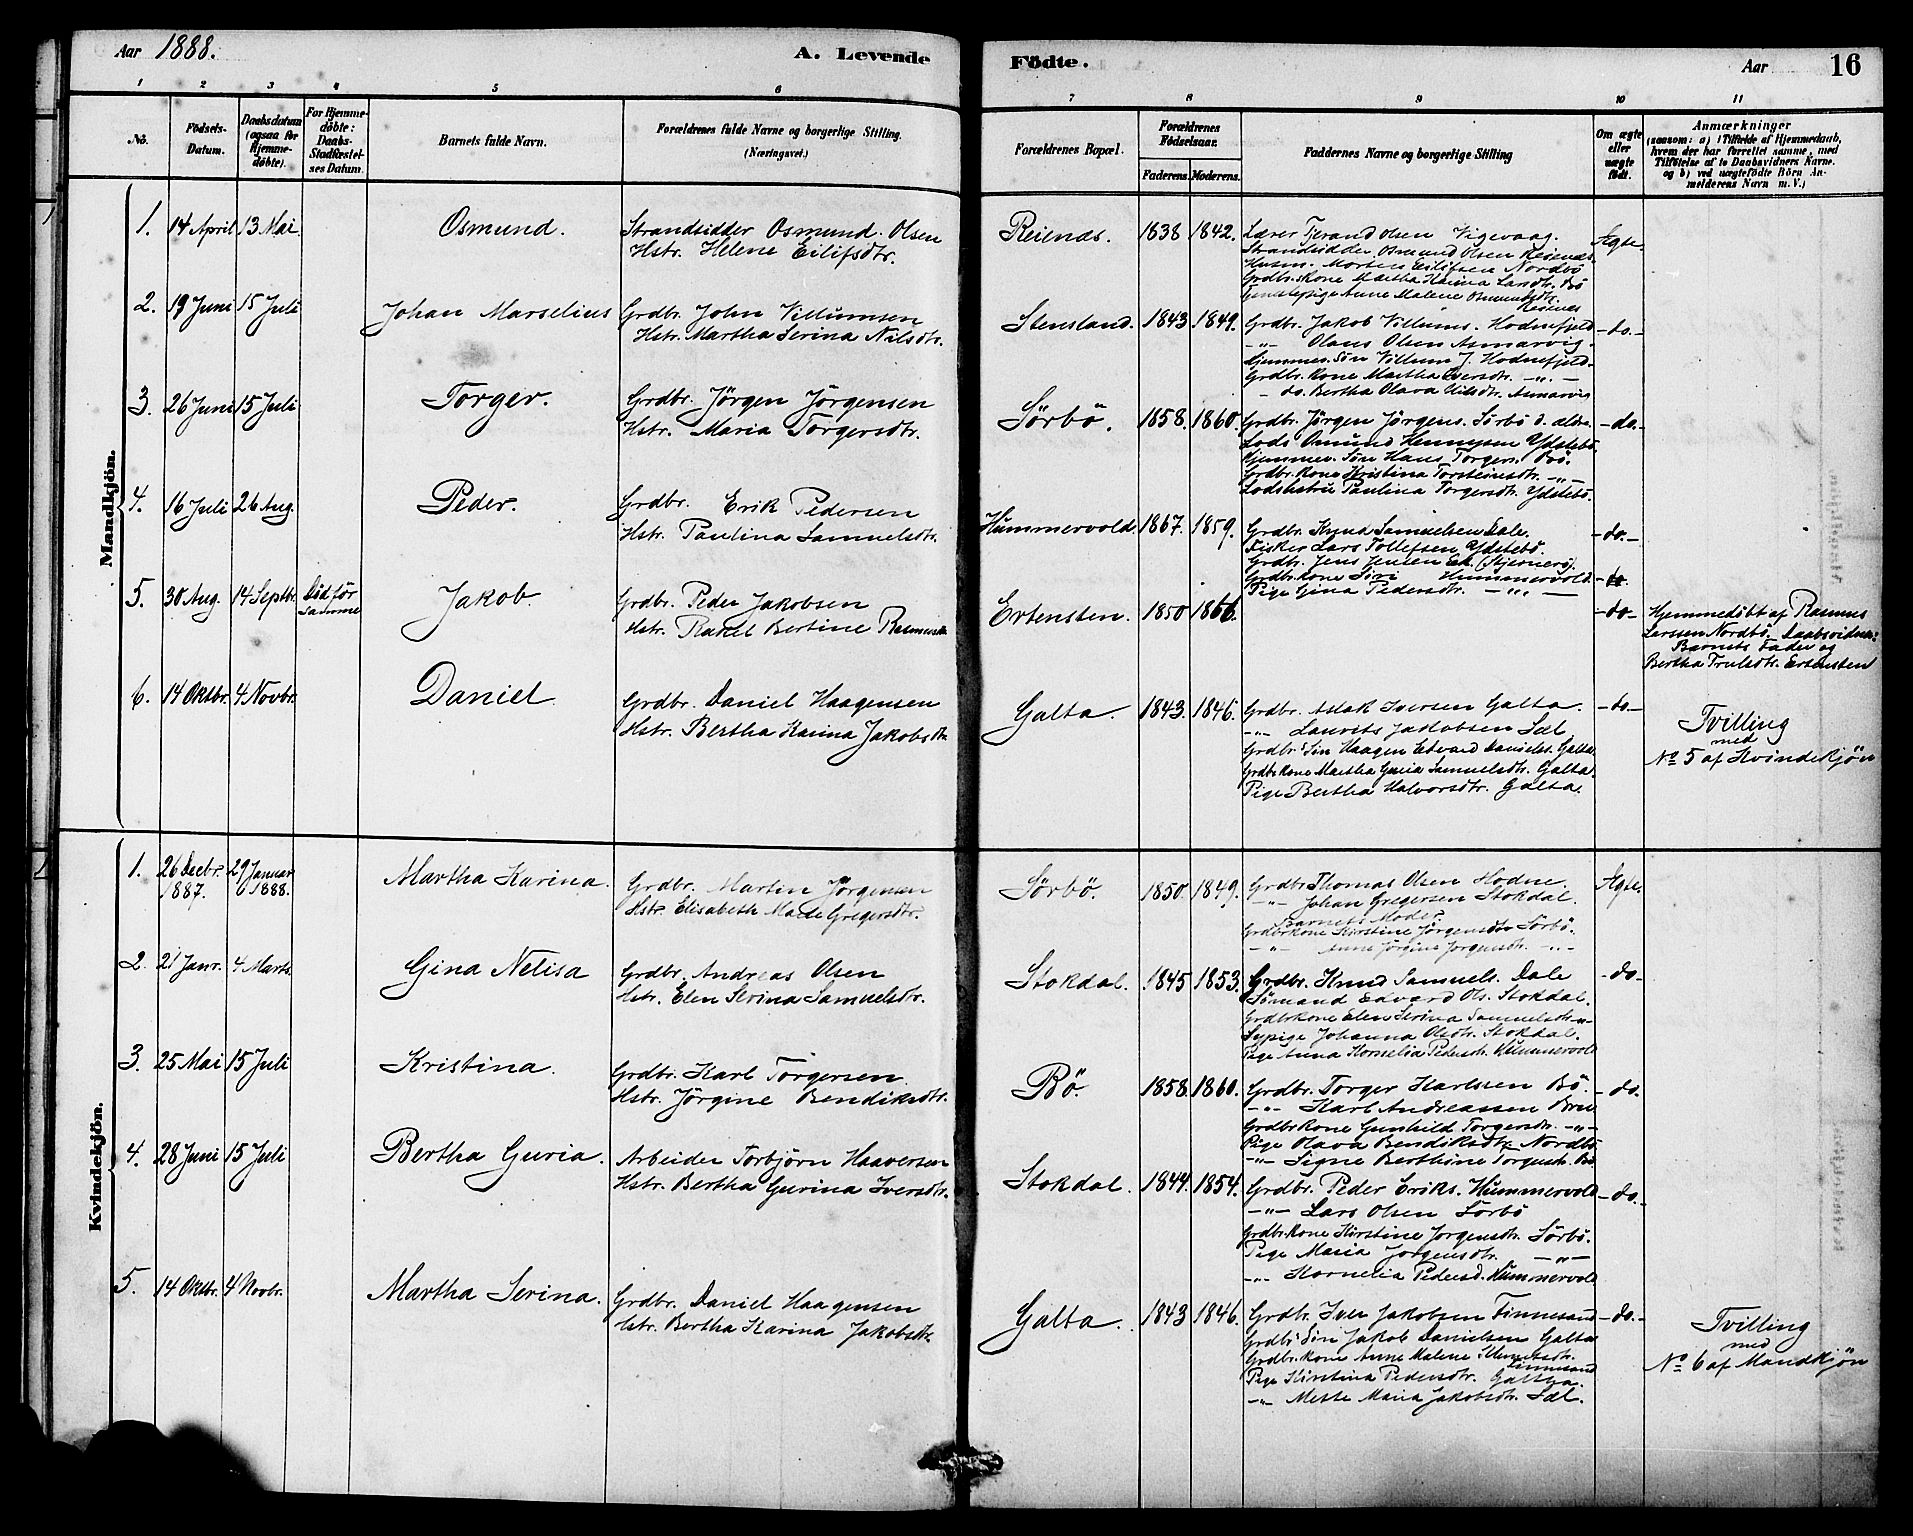 Aar 1888. A. Levende Födte. Aar 16
1 2 3 4 5 6 7 8 9 10 11
No. Födsels-Datum. Daabsdatum (ogsaa for Hjemme-döbte). For Hjemme-döbte: Daabs-Stadfæstel-ses Datum. Barnets fulde Navn. Forældrenes fulde Navne og borgerlige Stilling. (Næringsvei.) Forældrenes Bopæl. Forældrenes Födselsaar. Faderens. Moderens. Faddernes Navne og borgerlige Stilling Om ægte eller uægte födt. Anmærkninger (saasom: a) i Tilfælde af Hjemmedaab, hvem der har forrettet samme, med Tilföielse af to Daabsvidners Navne. og b) ved uægtefödte Börn An-melderens Navn m. V.)
Mandkjön.
1. 14 April 13 Mai. Osmund. Strandsidder Osmund Olsen Reienæs. 1838 1842. Lærer Tjerand Olsen Vigevaag. Ægte.
Hstr. Helene Eilifsdtr. Strandsidder Osmund Olsen Reienæs.
Husm. Morten Eilifsen Nordbö
Grdbr. Kone Martha Karina Larsdtr. Bö
Anne Malene Osmundsdtr. Reienæs
2. 19 Juni 15 Juli Johan Marselius Grdbr. John Villumsen Stensland. 1843 1849. Grdbr. Jakob Villums. Hodnefjeld -do.-
Hstr. Martha Serina Nilsdtr. -"- Olaus Olsen Asmarvig.
Hjemmev. Sön Villum J. Hodnefjeld.
Grdbr. Kone Martha Iversdtr. -"-
- do. Bertha Olava Nilsdtr. Asmarvig
3. 26 Juni 15 Juli Torger. Grdbr. Jörgen Jörgensen Sörbö. 1858. 1860. Grdbr. Jörgen Jörgens. Sörbö d. ældre. -do.-
Hstr. Maria Torgersdtr. Lods Osmund Henningsen Ydstebö.
Hjemmev. Sön Hans Torgers. Bö.
Grdbr. Kone Kristina Torsteinsdtr. -"-
Lodshstru Paulina Torgersdtr. Ydstebö.
4. 16 Juli 26 Aug. Peder. Grdbr. Erik Pedersen Hummervold. 1867. 1859. Grdbr. Knud Samuelsen Dale. -do.-
Hstr. Paulina Samuelsdtr. Fisker Lars Tollefsen Ydstebö.
Grdbr. Jens Jensen Eik (Stjernerö).
Grdbr. Kone Siri Hummervold.
Pige Gina Pedersdtr. -"-
5. 30 Aug. 14 Septbr. Död för samme Jakob. Grdbr. Peder Jakobsen Ertensten. 1850 1866. -do- Hjemmedöbt af Rasmus
Hstr. Rakel Bertine Rasmusdtr. Larssen Nordbö. Daabsvidner:
Barnets Fader og
Bertha Trulsdtr. Ertensten
6. 14 Oktbr. 4 Novbr. Daniel Grdbr. Daniel Haagensen Galta. 1843. 1846. Grdbr. Aslak Iversen Galta. -do- Tvilling
Hstr. Bertha Karina Jakobsdtr. -"- Laurits Jakobsen Sæl med
Grdbr. Sön Haagen Edvard Daniels. Galta. No 5 af Kvindekjön
Grdbr. Kone Martha Guria Samuelsdtr. Galta.
Pige Bertha Halvorsdtr. Galta.
Kvindekjön.
1. 26 Decbr. 1887. 29 Januar 1888. Martha Karina. Grdbr. Martin Jörgensen Sörbö. 1850. 1849. Grdbr. Thomas Olsen Hodne. Ægte.
Hstr. Elisabeth Marie Gregersdtr. -"- Johan Gregersen Stokdal.
Barnets Moder.
Grdbrkone Kirstine Jörgensdtr Sörbö.
-"- Anne Jörgine Jörgensdtr. -"-
2. 21 Janr. 4 Marts. Gina Nelisa Grdbr. Andreas Olsen Stokdal. 1845 1853. Grdbr. Knud Samuels. Dale -do-
Hstr. Elen Serina Samuelsdtr. Sömand Edvard Ols. Stokdal.
Grdbrkone Elen Serina Samuelsdtr. -"-
Sypige Johanna Olsdtr. Stokdal.
Pige Anna Kornelia Pedersdtr. Hummervold
3. 25 Mai 15 Juli Kristina. Grdbr. Karl Torgersen. Bö. 1858. 1860. Grdbr. Torger Karlssen Bö. -do.
Hstr. Jörgine Bendiksdtr. -"- Karl Andreassen Bru
Grdbrkone Gunhild Torgersdtr. -"-
Pige Olava Bendiksdtr. Nordbö
-"- Signe Berthine Torgersdtr. Bö
4. 28 Juni 15 Juli Bertha Guria. Arbeider Torbjörn Haaversen Stokdal. 1844. 1854. Grdbr. Peder Eriks. Hummervold -do.-
Hstr. Bertha Gurina Iversdtr. -"- Lars Olsen Sörbö
Grdbr. Kone Kirstine Jörgensdtr. Sörbö.
Pige Maria Jörgensdtr. -"-
-"- Kornelia Pedersd. Hummervold
5. 14 Oktbr. 4 Novbr. Martha Serina. Grdbr. Daniel Haagensen Galta. 1843 1846. Grdbr. Iver Jakobsen Finnesand -do.- Tvilling
Hstr. Bertha Karina Jakobsdtr. Grdbr. Sön Jakob Danielsen Galta med
Grdbr. Kone Anne Malene Finnesand No 6 af Mandkjön
Pige Kirstina Pedersdtr. Galta.
-"- Mette Maria Jakobsdtr. Sæl.